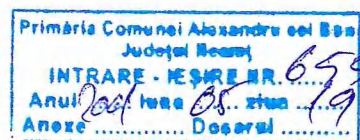 Primăria Comunei Alexandru cel Bun
Județul Neamț
INTRARE - IEȘIRE NR. 65
Anul 2021 luna 05 ziua 19
Anexe ............ Dosarul ............